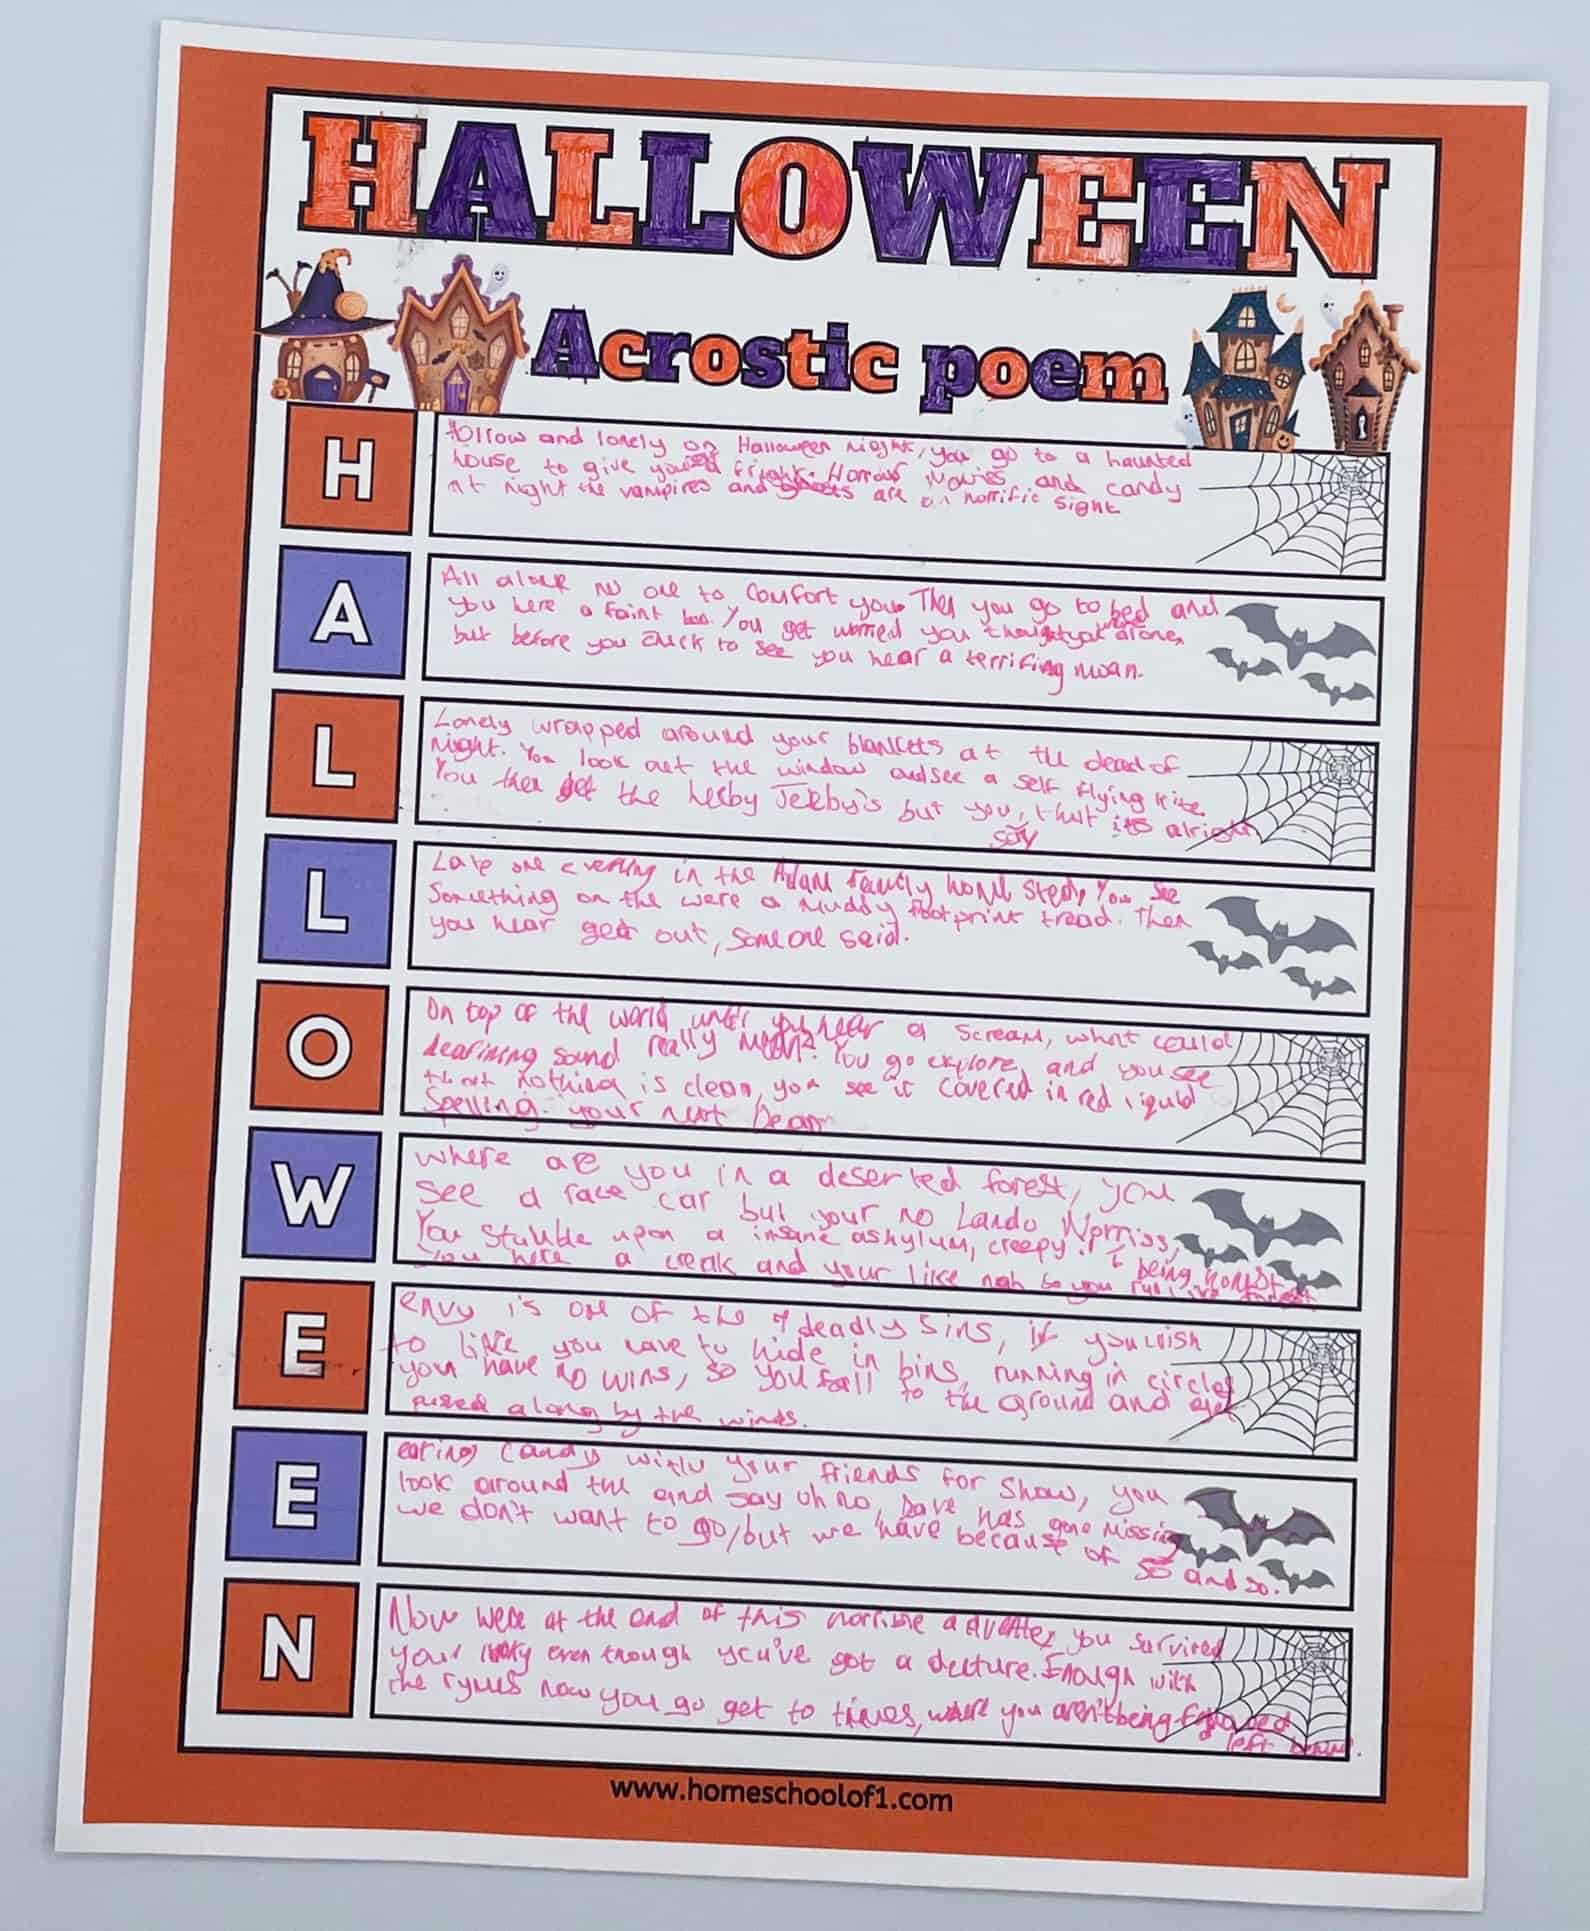 HALLOWEEN
Acrostic poem
H
Hollow and lonely on Halloween night, you go to a haunted
house to give you a fright. Horror movies and candy
At night the vampires and ghosts are an horrific sight
A
All alone no one to comfort you. Then you go to bed and
you here a faint You get worried you thought you were alone,
but before you chuck to see you hear a terrifing moan.
L
Lonely wrapped around your blankets at the dead of
night. You look out the window and see a self flying kite
You then get the heeby Jeeby's but you say that its alright
L
Late one evening in the Adam family home stedy You see
Something on the were a muddy footprint tread. Then
you hear get out, someone said.
O
On top of the world until you hear a scream, what could
deafining sound really mean? You go explore and you see
that nothing is clean, you see it covered in red liquid
Spelling your next
W
where are you in a deserted forest, you
see a race car but your no Lando Norriss,
You stumble upon a insane ashylum, creepy! I being honest
You here a creak and your like nah so you run
E
envy is one of the 7 deadly sins, if you wish
to like you have to hide in bins, running in circles
you have no wins, so you fall to the ground and get
along by the winds.
E
eating candy with your friends for show, you
look around the and say oh no, Dave has gone missing
we don't want to go/but we have because of
so and so.
N
Now were at the end of this horrible adventer, you survived
your lucky even though you've got a Enough with
the rymes now you go get to times, where you aren't being
left behind.
www.homeschoolof1.com